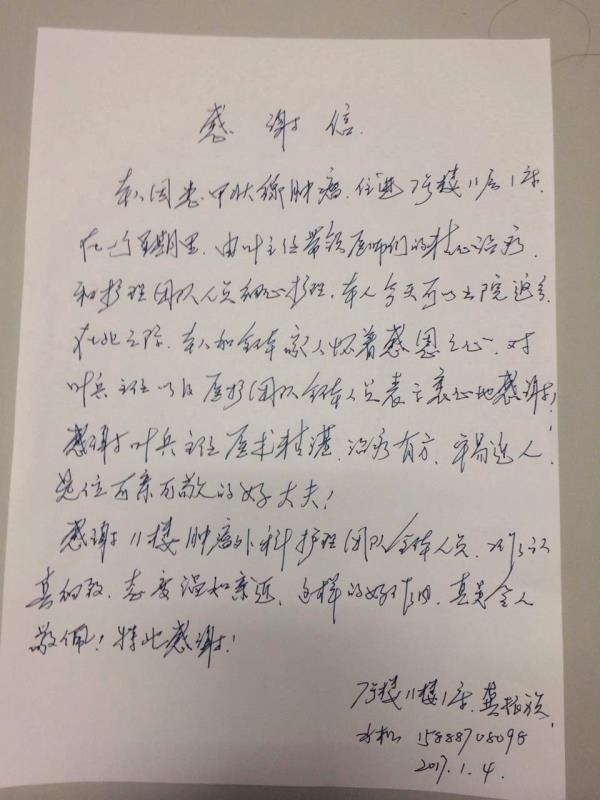 感谢信
本人因患甲状腺肿瘤.住进7号楼11层1床.
在一个星期里.由叶主任带领医师们的精心治疗.
和护理团队人员细心护理.本人今天可以出院返乡.
在此之际.本人和全体家人怀着感恩之心.对
叶兵主任以及医护团队全体人员表示衷心地感谢!
感谢叶兵主任医术精湛.治疗有方.平易近人.
是位可亲可敬的好大夫!
感谢11楼肿瘤外科护理团队全体人员.工作认
真细致.态度温和亲近.这样的好作风.真美令人
敬佩!特此感谢!
7号楼11楼1床.龚振
手机 15888708098
2017.1.4.